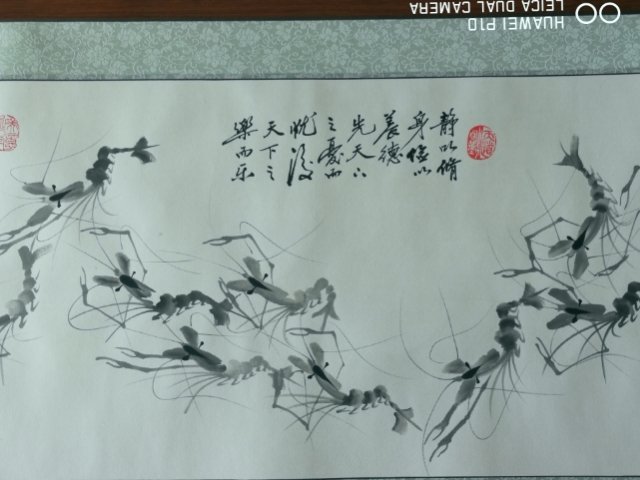 静以脩
身俭以
養德
先天下
之憂而
忧後
天下之
樂而乐
HUAWEI P10
LEICA DUAL CAMERA